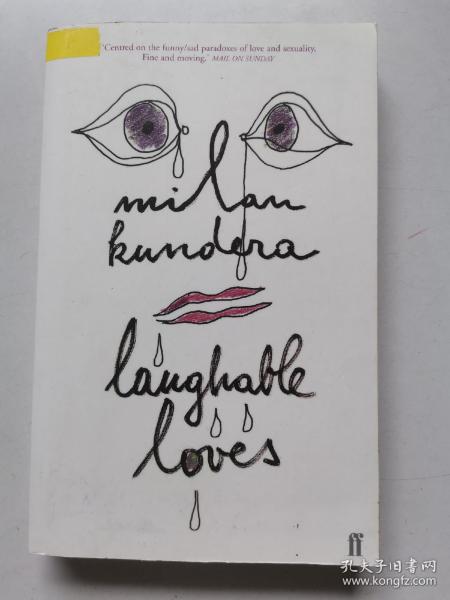 'Centred on the funny/sad paradoxes of love and sexuality.
Fine and moving.' MAIL ON SUNDAY
milan
kundera
laughable
loves
ff
孔夫子旧书网
www.kongfz.com